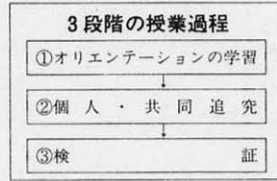 3段階の授業過程
①オリエンテーションの学習
②個人・共同追究
③検証